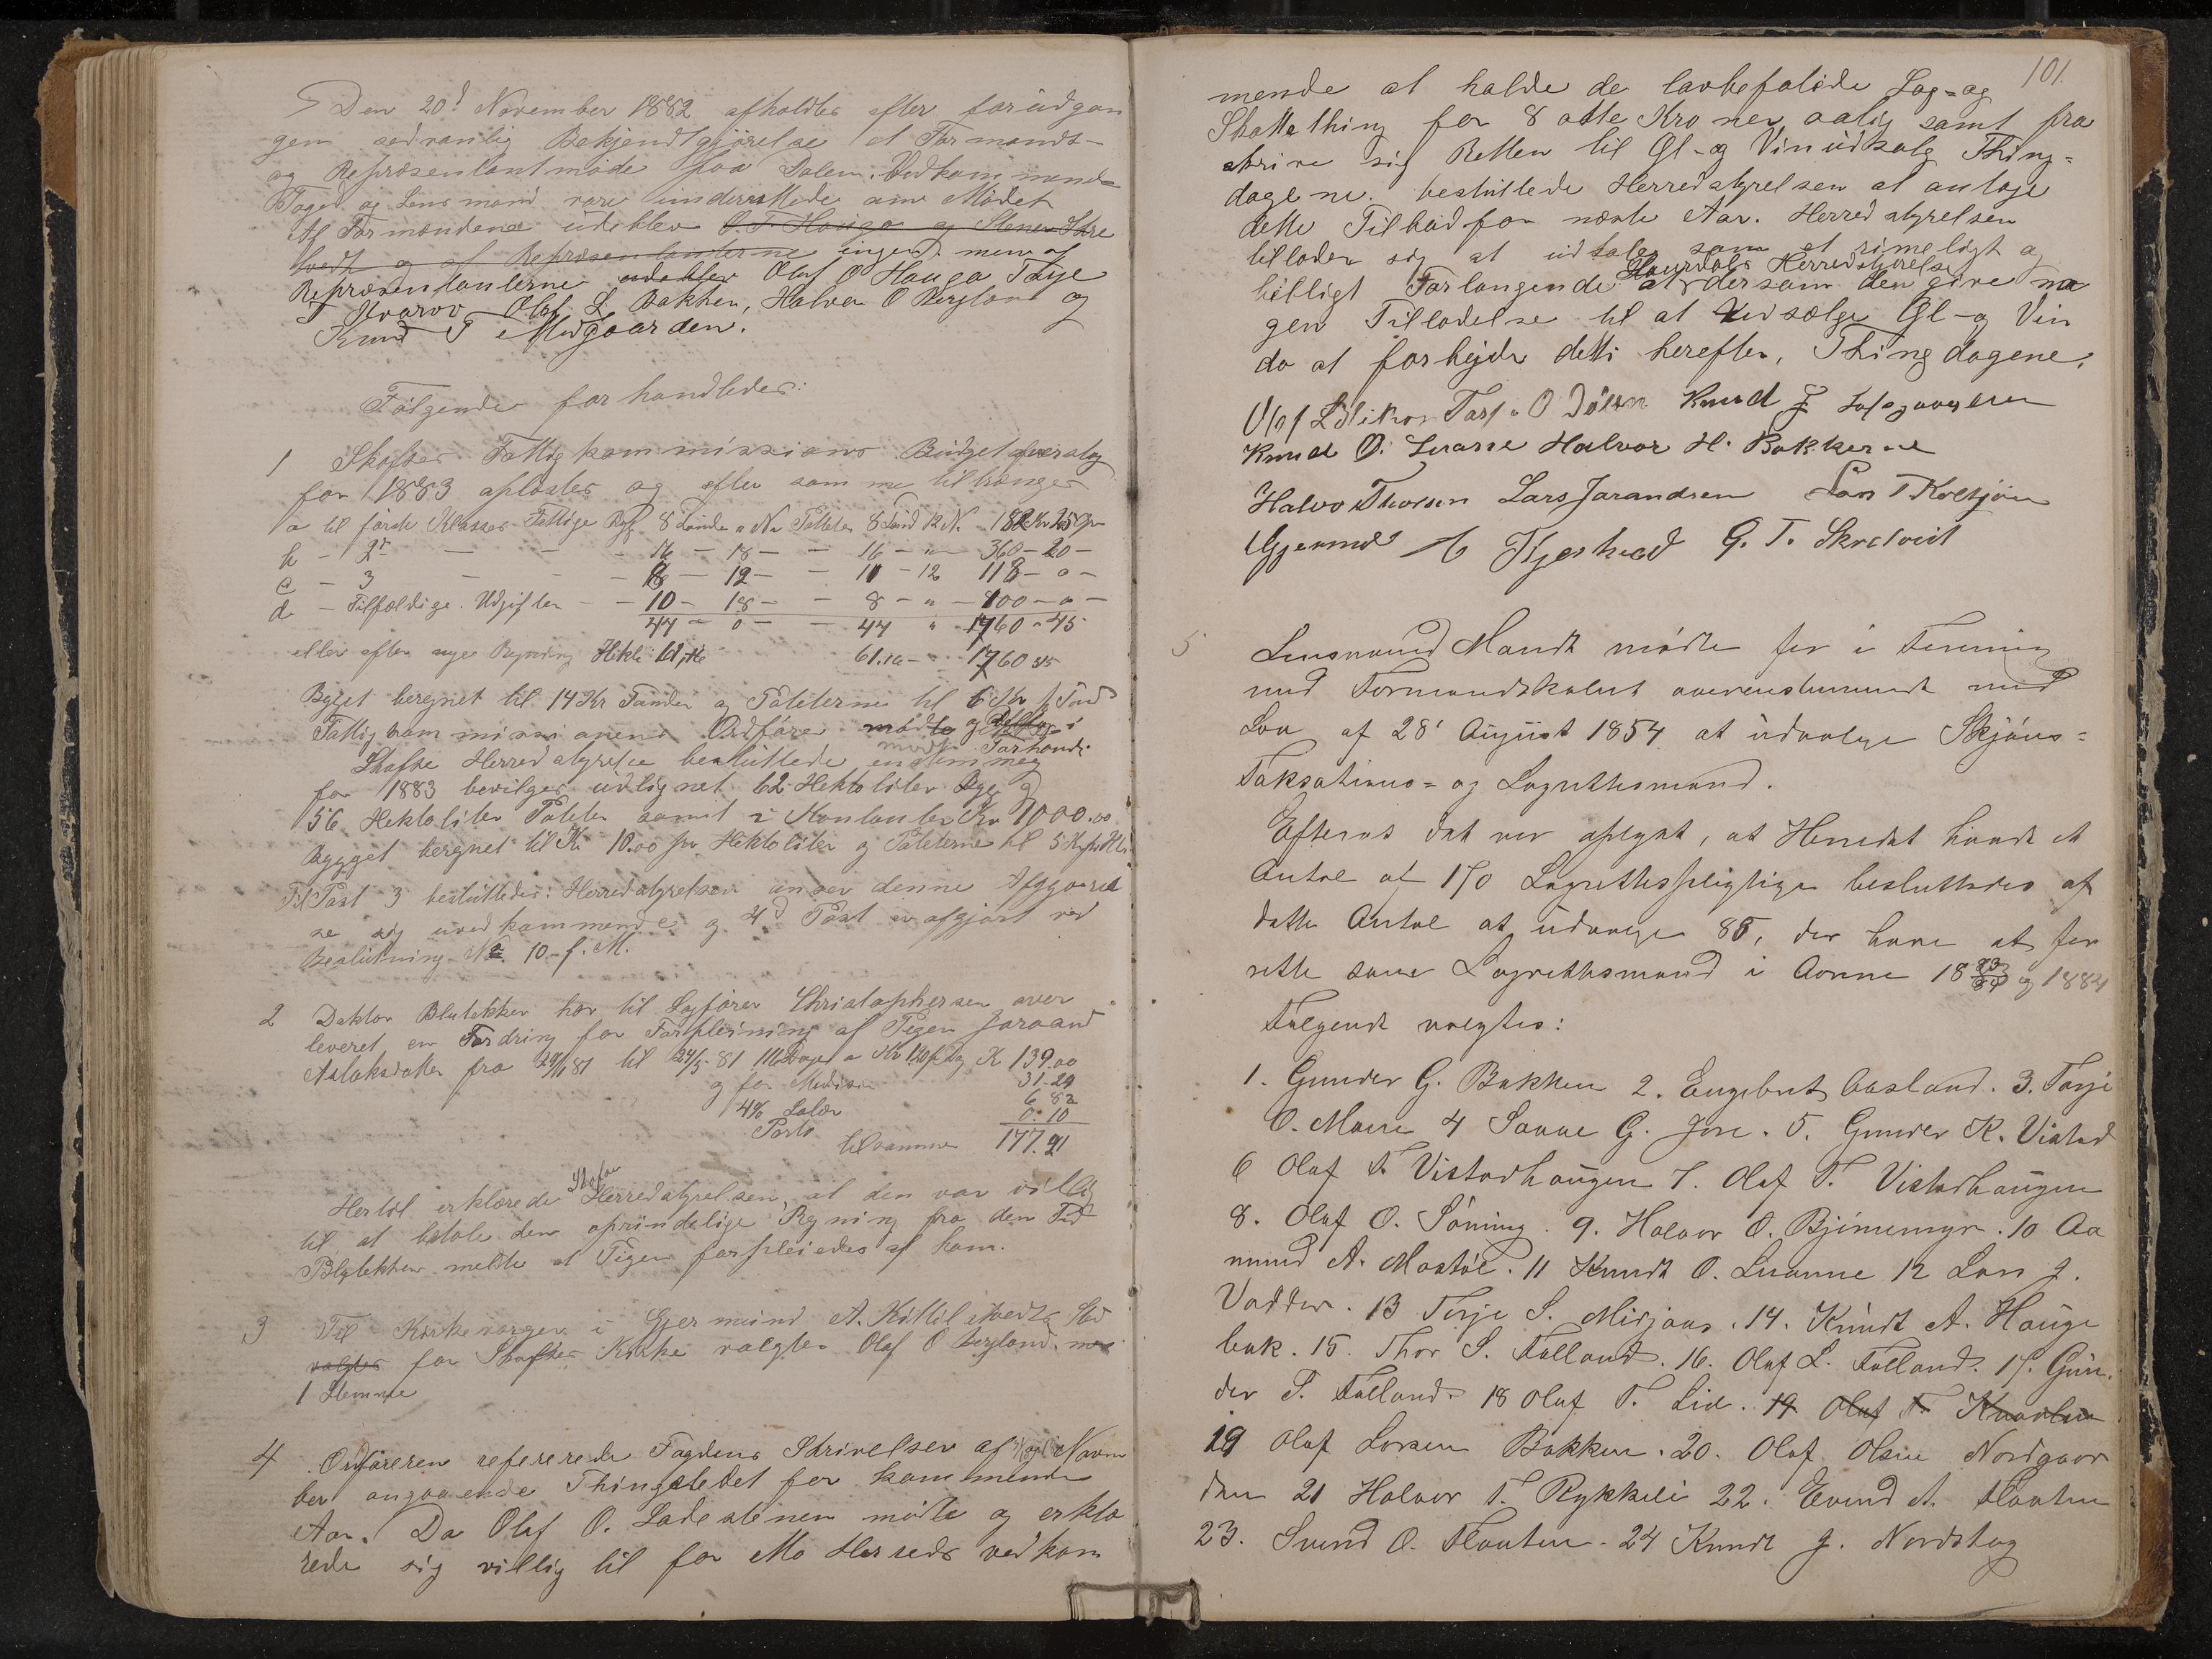 Den 20de November 1882 afholdtes efter forudgaa
gen sedvanlig Bekjendtgjørelse et Formands-
og Repræsentantmøde paa Dalen. Vedkommende
Foged og Lensmand vare underrettede om Mødet
Af Formændene udeblev O. T. Hauga og Stener Skre
vedt og af Repræsentanterne ingen men af
Repræsentanterne udeblev Olaf O Hauga Tarje
T Kvarvv Olaf L Bakken, Halvor O Bergland og
Knud T Midgaarden.
Følgende forhandledes:
1 Skafser Fattigkommissions Budgetoverslag
for 1883 oplæstes og efter samme tiltrænges
a til første Klasses Fattige Byg 8 Tønder Poteter 8 Tønd 12 182 Kr 25 Øre
b - 2den — - - 16 - 18 - - 16 - " - 360 - 20 -
c - 3 — - - 8 - 12 - - 11 - 12 118 - 0 -
d - Tilfældige Udgifter - - 10 - 18 - - 8 - " - 100 - 0 -
44 - 0 - - 44 " 1760 - 45
eller efter nye Regning Hektl 61,16 61.16 - 1760 45
Bygget beregnet til 14 Kr Tønden og Poteterne til 6 Kr pr Tønd
Fattigkommissionens Ordfører mødte og deltog i
mødte Forhandl.
Skafse Herredsstyrelse besluttede enstemmig
for 1883 bevilges udlignet 62 Hektoliter Byg og
56 Hektoliter Poteter samt i Kontanter Kr 1000.00
Bygget beregnet til Kr 10.00 pr Hektoliter og Poteterne til 5 Kr pr Htl.
Til Post 3 besluttedes: Herredsstyrelsen anser denne Afgjørel
se sig uvedkommende og 4de Post er afgjort ved
Beslutning No 10 f. M.
2 Doktor Blutekker har til Sagfører Christophersen over
leveret en Fordring for Forpleining af Pigen Joraand
Aslaksdatter fra 29/11 81 til 24/3 81 116 Dage a Kr 1.20 pr Dag Kr 139.00
og for Medisin 31.29
4% Salær 6 82
Porto 0.10
tilsammen 177.21
Hertil erklærede Skafse Herredsstyrelsen, at den var villig
til at betale den oprindelige Regning fra den Tid
Blytekker meldte at Pigen forpleiedes af ham.
3 Til Kirkeværger i Gjermund A. Kittilskvedts Sted
valgtes for Skafse Kirke valgtes Olaf O Bergland med
1 Stemme
4 Ordføreren refererede Fogdens Skrivelser af Novem
ber angaaende Thingstedet for kommende
Aar. Da Olaf O. Ladestenen mødte og erklæ
rede sig villig til for Mo Herreds vedkom
101.
mende at holde de lovbefalede Sag- og
Skattething for 8 otte Kroner aarlig samt fra
skrive sig Retten til Øl- og Vinudsalg Thing-
dagene. besluttede Herredsstyrelsen at antage
dette Tilbud for næste Aar. Herredsstyrelsen
tillader sig at udtale som et rimeligt og
billigt Forlangende at Laurdals Herredsstyrelse dersom den give no
gen Tilladelse til at udsælge Øl- og Vin
da at forbyde dette herefter, Thingdagene.
Olaf L Tarj O Dølen Knud
Knud O. Luarne Halvor H. Bakkerne
Halvor Thorsen Lars Jarandsen Lars T Koltjøn
Gjermund A Kjoshed G. T. Skredvedt
5 Lensmand Mandt mødte for i Forening
med Formandskabet overensstemmende med
Lov af 28de August 1854 at udvælge Skjøns-
Taksations- og Lagrettesmænd.
Efter at det var oplyst, at Herredet havde et
Antal af 170 Lagrettespligtige besluttedes af
dette Antal at udvælge 85, der have at for
rette som Lagrettesmænd i Aarene 1883 og 1884
Følgende valgtes:
1. Gunder G. Bakken 2. Engebret Aasland. 3. Tarje
O. Moen 4 Saave G. Jore. 5. Gunder K. Vistad
6 Olaf T. Vistadhaugen 7. Olaf T. Vistadhaugen
8. Olaf O. Söning. 9. Halvor O. Bjönnemyr. 10 Aa
mund A. Mostöl. 11 Knudt O. Luanne 12 Lars J.
Vadder. 13 Terje S. Midjaas. 14. Knudt A. Hauge
bak. 15. Thor S. Felland. 16. Olaf L. Felland. 17. Gun
der S. Felland. 18 Olaf T. Lid. 19 Olaf T. Kvaalen
19 Olaf Larsen Bakken. 20. Olaf Olsen Nordgaar
den 21 Halvor T. Rykkeli 22. Evend A. Flaaten
23. Svend O. Flaaten. 24 Knudt J. Nordstog